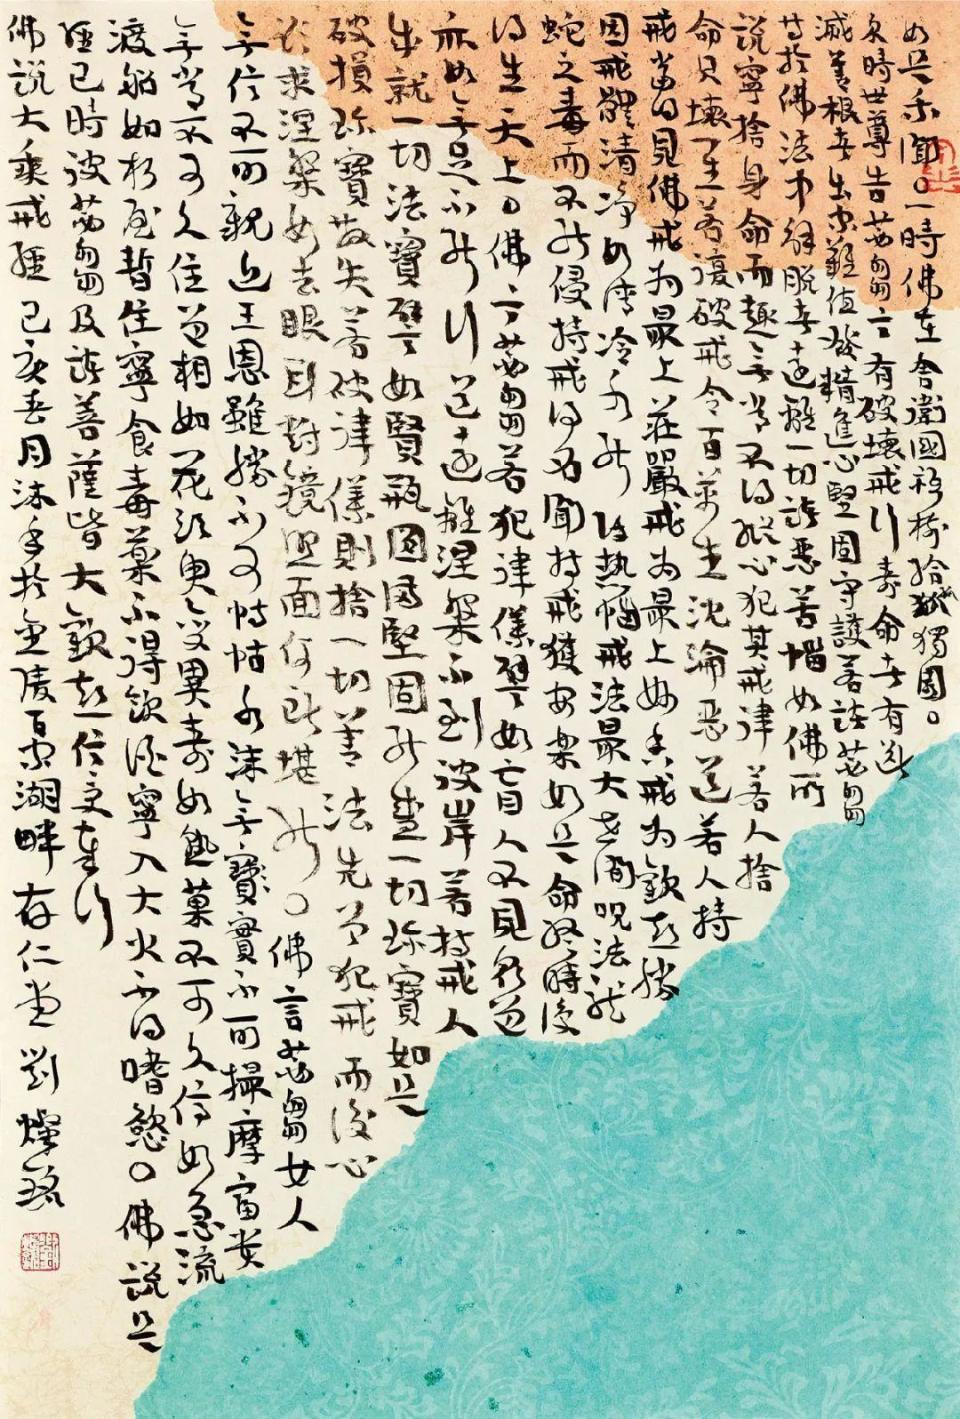 如是我聞。一時佛在舍衛國祇樹給孤獨園。
爾時世尊告苾芻言有破壞戒行壽命者有逝
滅善根者出家難值發精進心堅固守護若諸苾芻
等於佛法中解脫者遠離一切諸惡苦惱如佛所
說寧捨身命而趣無常不得縱心犯其戒律若人捨
命只壞一生若復破戒令百萬生沈淪惡道若人持
戒當得見佛戒為最上莊嚴戒為最上妙香戒為歡喜勝
因戒體清淨如清冷水能除熱惱戒法最大世間呪法龍
蛇之毒而不能侵持戒得名聞持戒獲安樂如是命終時後
得生天上。佛言苾芻若犯律儀譬如盲人不見眾道
亦如無足不能行道遠離涅槃不到彼岸若持戒人
成就一切法寶譬如賢瓶圓滿堅固能盛一切珍寶如是
破損珍寶散失若破律儀則捨一切善法先曾犯戒而後心
欲求涅槃如去眼耳對鏡照面何所堪能。佛言苾芻女人
無信不可親近王恩雖勝不可恃怙水沫無寶實不可操摩富貴
無常不可久住色相如花須臾變異壽如熟菓不可久停如急流
渡船如朽屋暫住寧食毒藥不得飲酒寧入大火不得嗜慾。佛說是
經已時彼苾芻及諸菩薩皆大歡喜信受奉行
佛說大乘戒經 己亥春月沐手於金陵百家湖畔存仁堂 劉燦銘